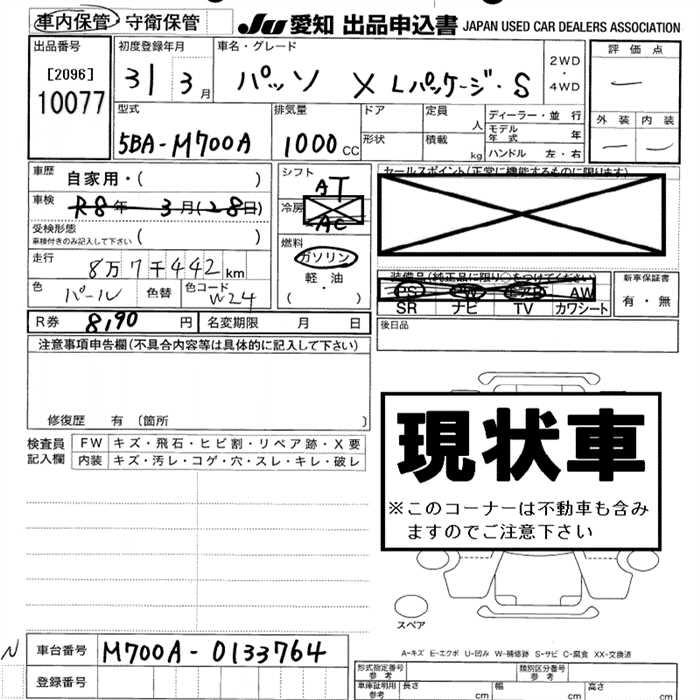 車内保管・守衛保管
JU 愛知 出品申込書 JAPAN USED CAR DEALERS ASSOCIATION
出品番号 初度登録年月 車名・グレード 2WD・4WD 評価点
[2096] 10077 31 3月 パッソ X Lパッケージ・S 一
型式 排気量 ドア 定員 人 ディーラー・並行 外装 内装
5BA-M700A 1000cc 形状 積載 kg モデル年式 年 一 一
ハンドル 左・右
車歴 自家用・( ) シフト AT セールスポイント(正常に機能するものに限ります)
車検 R8年 3月(28日) 冷房 AC
受検形態 ( )
車検付きのみ記入して下さい
燃料 ガソリン
軽・油
・( )
走行 8万7千442km
色 パール 色替 色コード W24
装備品(純正品に限り○をつけてください) 新車保証書
PS PW AW 有・無
SR ナビ TV カワシート
R券 8,190円 名変期限 月 日 後日品
注意事項申告欄(不具合内容等は具体的に記入して下さい)
修復歴 有 〔箇所 〕
検査員記入欄 FW キズ・飛石・ヒビ割・リペア跡・X要
内装 キズ・汚レ・コゲ・穴・スレ・キレ・破レ
現状車
※このコーナーは不動車も含み
ますのでご注意下さい
スペア
A-キズ E-エクボ U-凹み W-補修跡 S-サビ C-腐食 XX-交換済
N 車台番号 M700A-0133764
登録番号
形式指定番号 参考 類別区分番号 参考
車庫証明用 参考 長さ cm 幅 cm 高さ cm